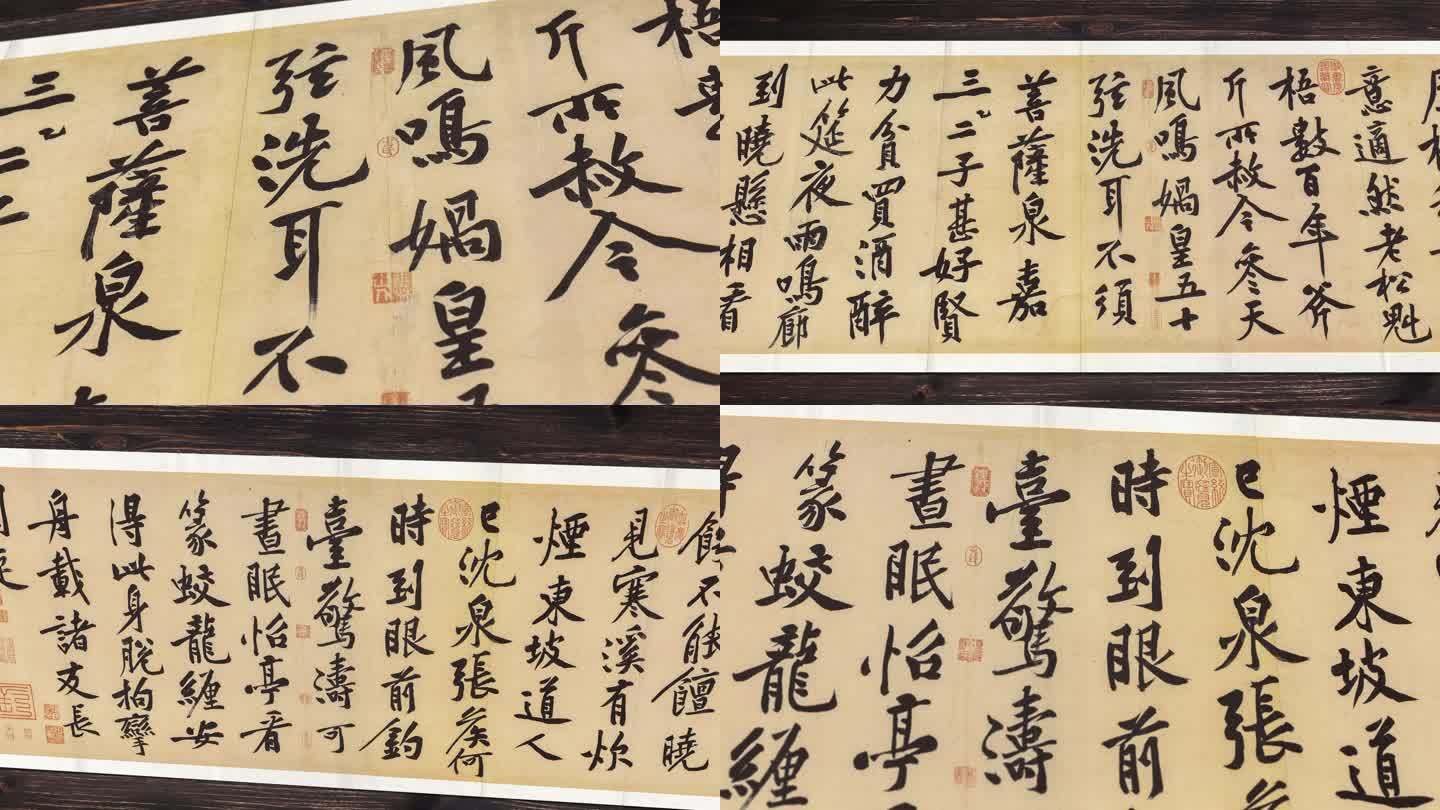 斤所赦今參
風鳴媧皇
弦洗耳不
菩薩泉
三二
意適然老松魁
梧數百年斧
斤所赦今參天
風鳴媧皇五十
弦洗耳不須
菩薩泉嘉
三二子甚好賢
力貧買酒醉
此筵夜雨鳴廊
到曉懸相看
不能饘曉
見寒溪有炊
煙東坡道人
已沈泉張侯何
時到眼前釣
臺驚濤可
晝眠怡亭看
篆蛟龍纏安
得此身脫拘攣
舟載諸友長
煙東坡道
已沈泉張
時到眼前
臺驚濤
晝眠怡亭
篆蛟龍纏